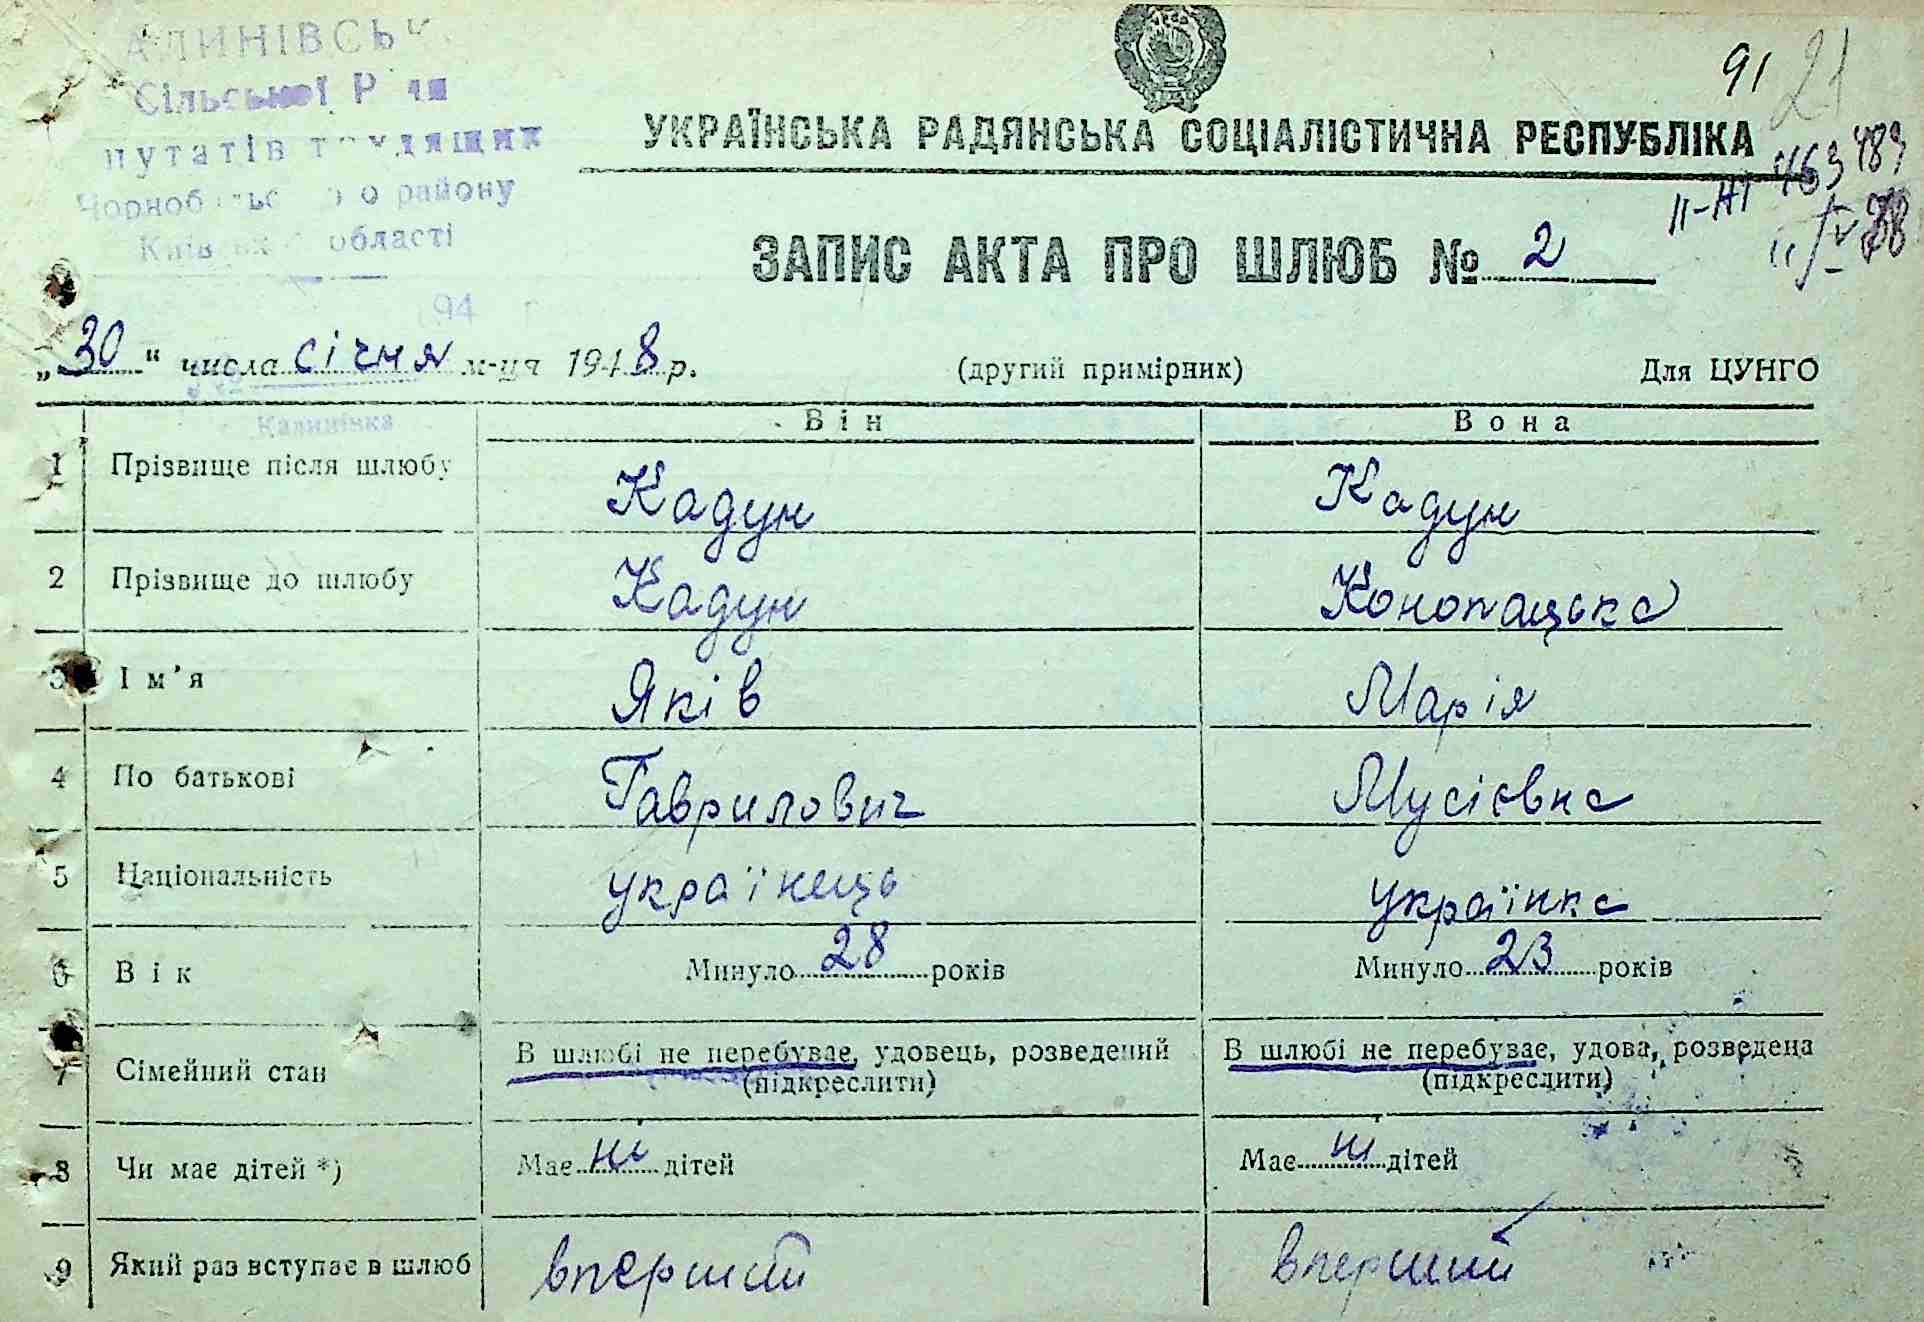 Сільської Ради
Чорнобильського району
Київської області
91 21
УКРАЇНСЬКА РАДЯНСЬКА СОЦІАЛІСТИЧНА РЕСПУБЛІКА
II-НТ 463489
ЗАПИС АКТА ПРО ШЛЮБ № 2
194 г
„30" числа січня м-ця 1948 р. (другий примірник) Для ЦУНГО
Калинівка
Він Вона
1 Прізвище після шлюбу Кадун Кадун
2 Прізвище до шлюбу Кадун Конопацька
3 Ім'я Яків Марія
4 По батькові Гаврилович Мусієвна
5 Національність українець українка
6 Вік Минуло 28 років Минуло 23 років
7 Сімейний стан В шлюбі не перебуває, удовець, розведений В шлюбі не перебуває, удова, розведена
(підкреслити) (підкреслити)
8 Чи має дітей *) Має ні дітей Має ні дітей
9 Який раз вступає в шлюб вперший вперший